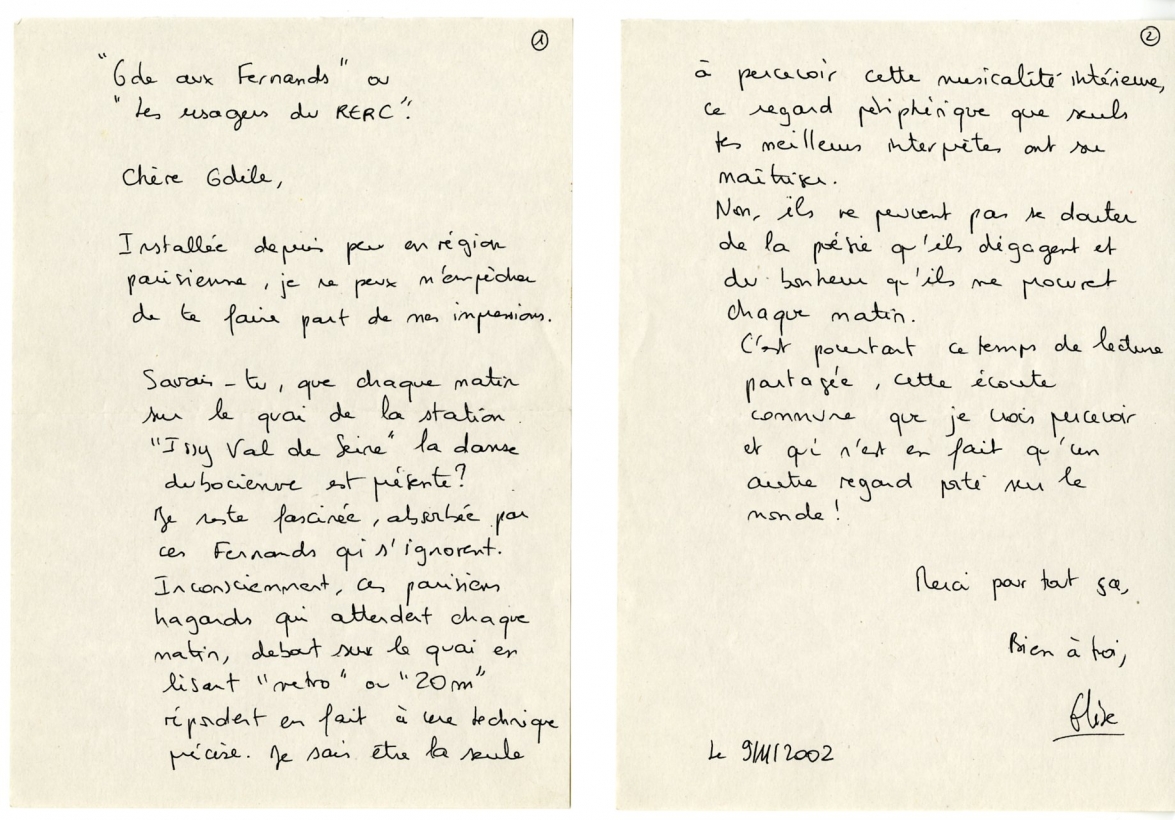 ①
"Ode aux Fernands" ou
"Les usagers du RERC".
Chère Odile,
Installée depuis peu en région
parisienne, je ne peux m'empêcher
de te faire part de mes impressions.
Savais-tu, que chaque matin
sur le quai de la station
"Issy Val de Seine" la danse
dubocienne est présente?
Je reste fascinée, absorbée par
ces Fernands qui s'ignorent.
Inconsciemment, ces parisiens
hagards qui attendent chaque
matin, debout sur le quai en
lisant "metro" ou "20 m"
répondent en fait à une technique
précise. Je sais être la seule
②
à percevoir cette musicalité intérieure,
ce regard périphérique que seuls
tes meilleurs interprètes ont su
maîtriser.
Non, ils ne peuvent pas se douter
de la poésie qu'ils dégagent et
du bonheur qu'ils me procurent
chaque matin.
C'est pourtant ce temps de lecture
partagée, cette écoute
commune que je crois percevoir
et qui n'est en fait qu'un
autre regard porté sur le
monde!
Merci pour tout ça,
Bien à toi,
Elise
Le 2002